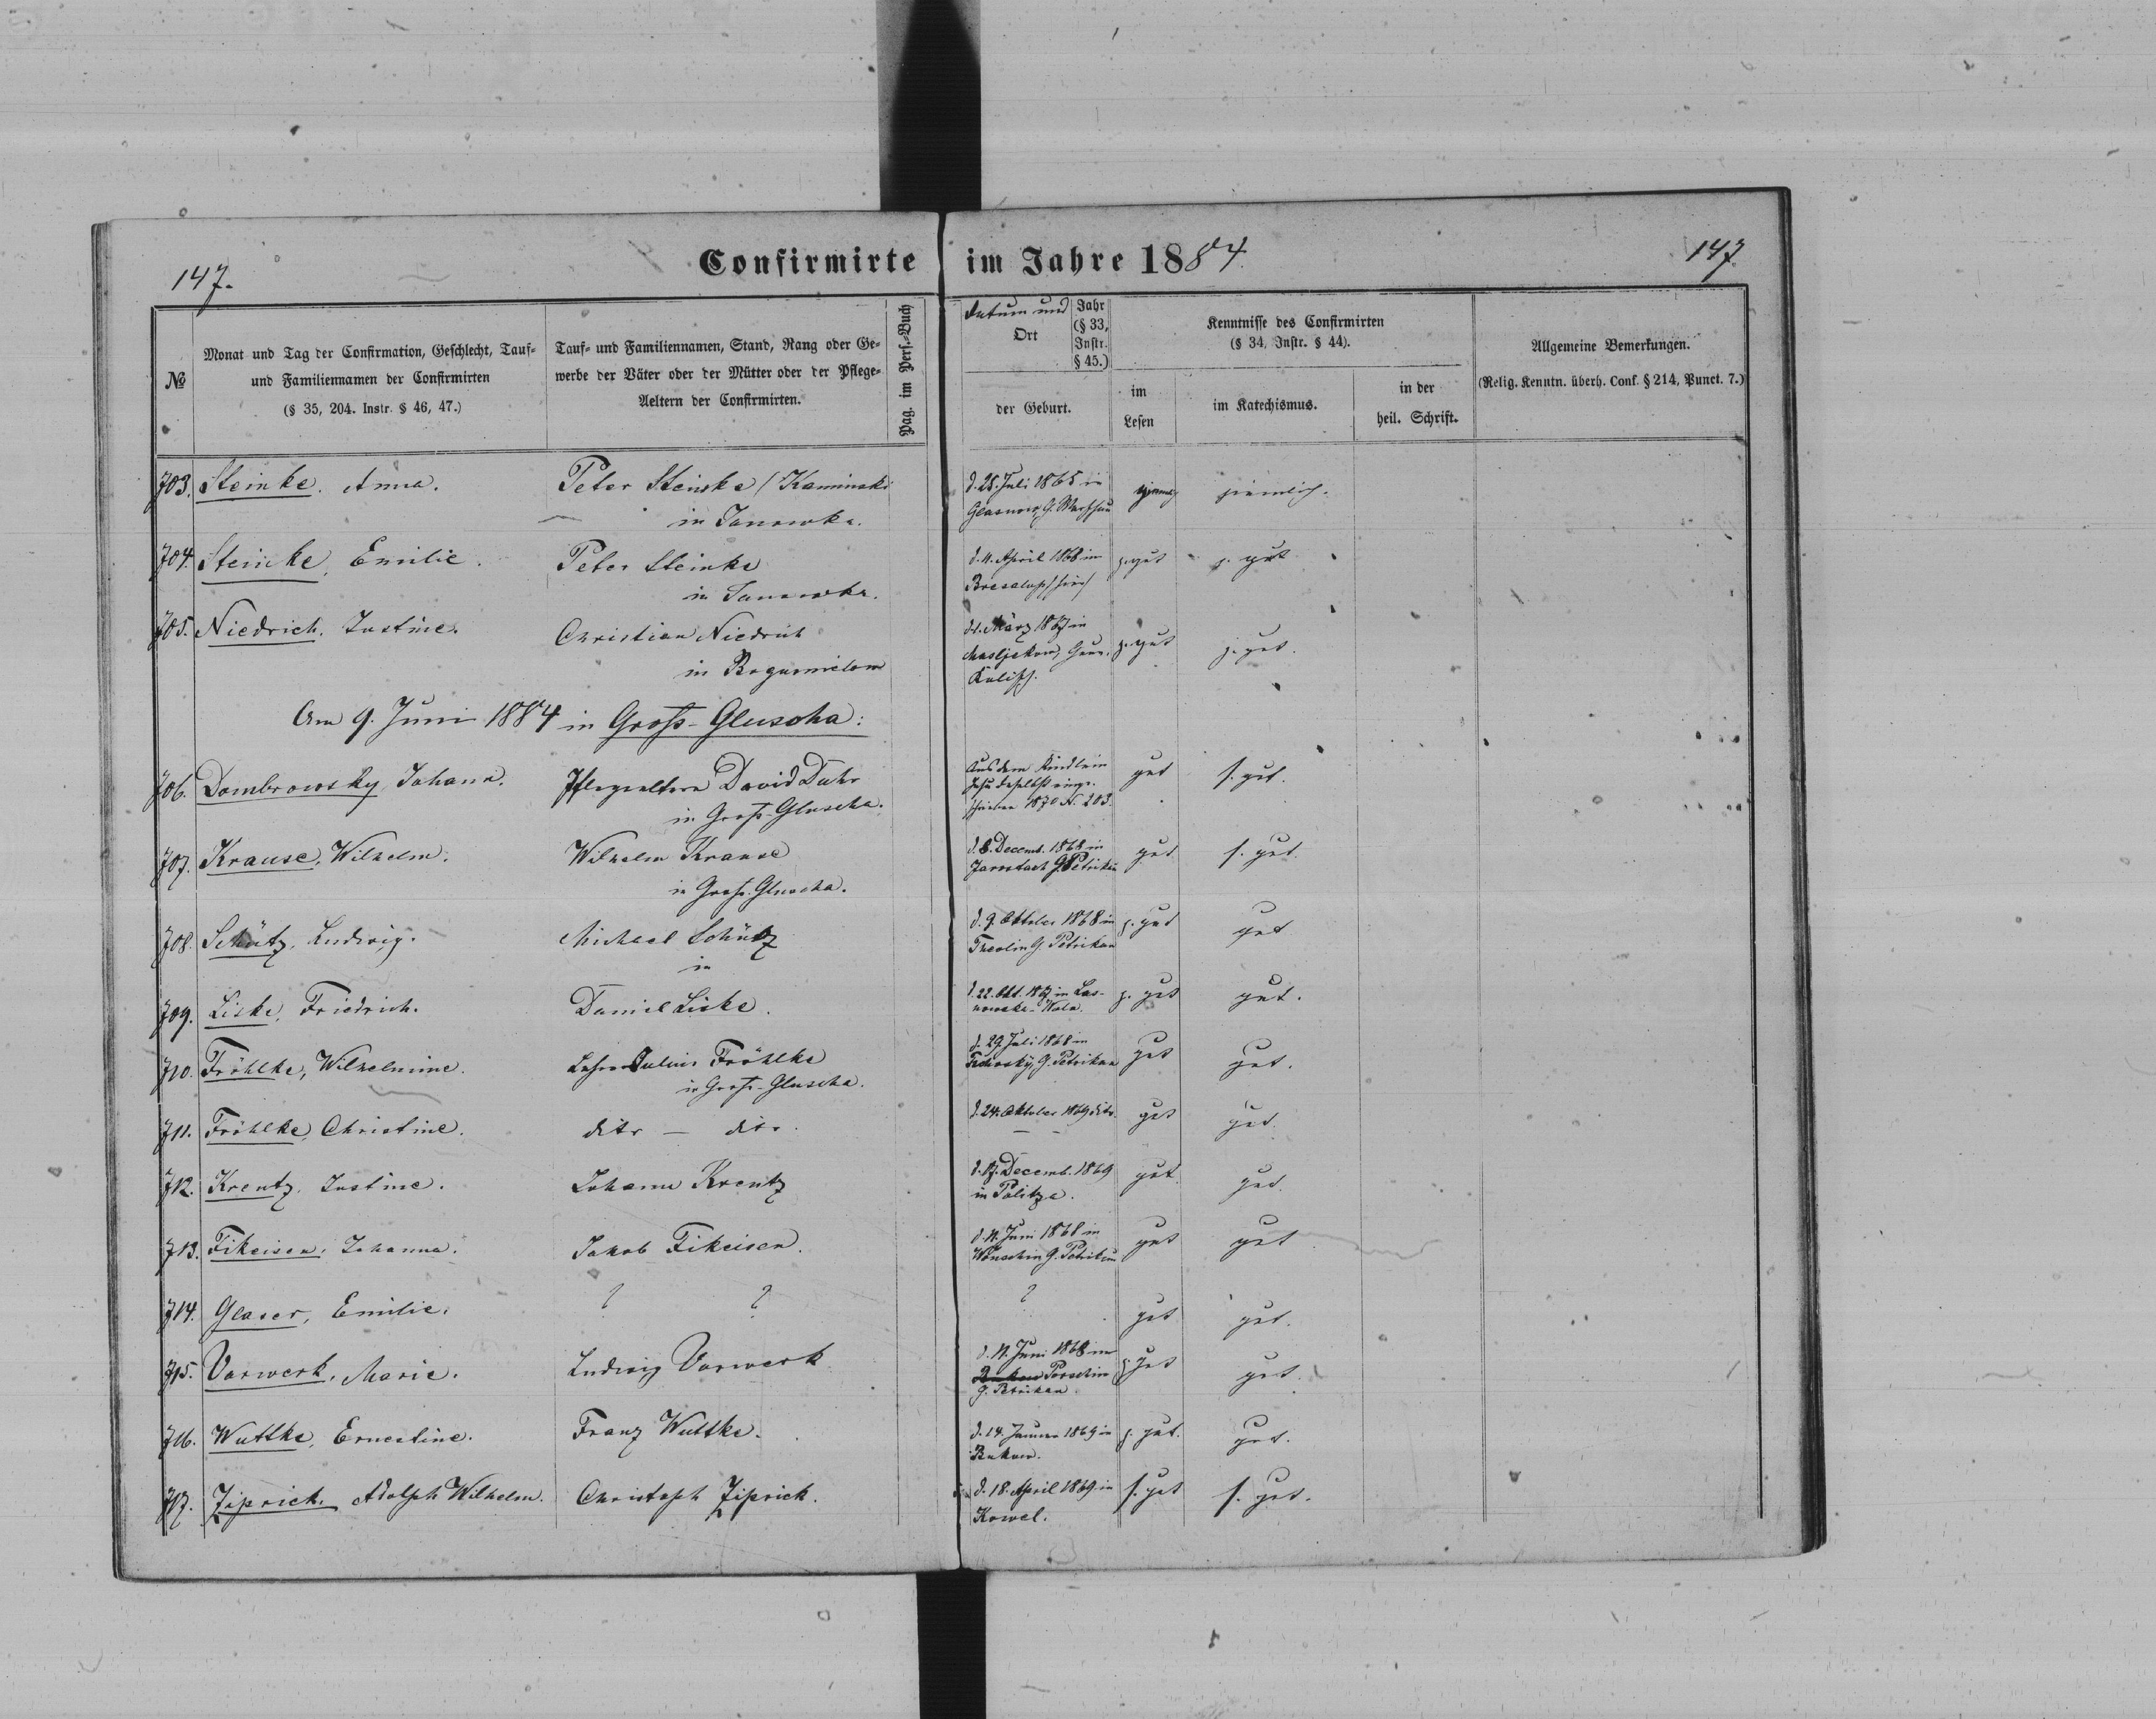 147.
Confirmirte im Jahre 1884.
147.
№
Monat und Tag der Confirmation, Geschlecht, Tauf-
und Familiennamen der Confirmirten
(§ 35, 204. Instr. § 46, 47.)
Tauf- und Familiennamen, Stand, Rang oder Ge-
werbe der Väter oder der Mütter oder der Pflege-
Aeltern der Confirmirten.
Pag. im Pers.-Buch
Datum und
Ort
Jahr
(§ 33,
Instr.
§ 45.)
der Geburt.
Kenntnisse des Confirmirten
(§ 34, Instr. § 44).
im
Lesen
im Katechismus.
in der
heil. Schrift.
Allgemeine Bemerkungen.
(Relig. Kenntn. überh. Conf. § 214, Punct. 7.)
703. Steinke. Anna. Peter Steinke (Kaminski d. 25. Juli 1865 in ziemlich ziemlich.
in Janowka. G. Warschau
704. Steinke, Emilie. Peter Steinke d. 11. April 1868 in z. gut z. gut
in Janowka.
705. Niedrich. Justine. Christian Niedrich März 1867 in z. gut z. gut.
in Bogumilow Gouv.
Kalisch.
Am 9. Juni 1884 in Groß-Gluscha:
706. Dombrowsky, Johann. Pflegeältern David Duhr Aus dem Kindlein gut s. gut.
in Groß-Gluscha. Jesu daselbst einge-
schrieben 1870 N. 203.
707. Krause, Wilhelm. Wilhelm Krause d. 8. Decemb. 1868 in gut s. gut.
in Groß-Gluscha. G. Petrikau
708. Schütz, Ludwig. Michael Schütz d. 9. Oktober 1868 in z. gut gut
in G. Petrikau
709. Liske, Friedrich. Daniel Liske. d. 22. Okt. 1867 in Las- z. gut gut.
nowska-Wola.
710. Fröhlke, Wilhelmine. Lehrer Julius Fröhlke d. 29. Juli 1868 in gut gut.
in Groß-Gluscha. G. Petrikau
711. Fröhlke, Christine. dito — dito. d. 24. Oktober 1869 dito. gut gut.
712. Krentz, Justine. Johann Krentz d. 17. Decemb. 1869 gut. gut.
in Politze.
713. Fikeisen, Johanna. Jakob Fikeisen. d. 11. Juni 1868 in gut gut
G. Petrikau
714. Glaser, Emilie. ? ? ? gut gut.
715. Vorwerk, Marie. Ludwig Vorwerk d. 11. Juni 1868 in z. gut gut.
G. Petrikau
716. Wuttke, Ernestine. Franz Wuttke. d. 14. Januar 1869 in z. gut. gut.
717. Ziprick, Adolph Wilhelm. Christoph Ziprick. d. 18. April 1869 in s. gut s. gut.
Kowel.